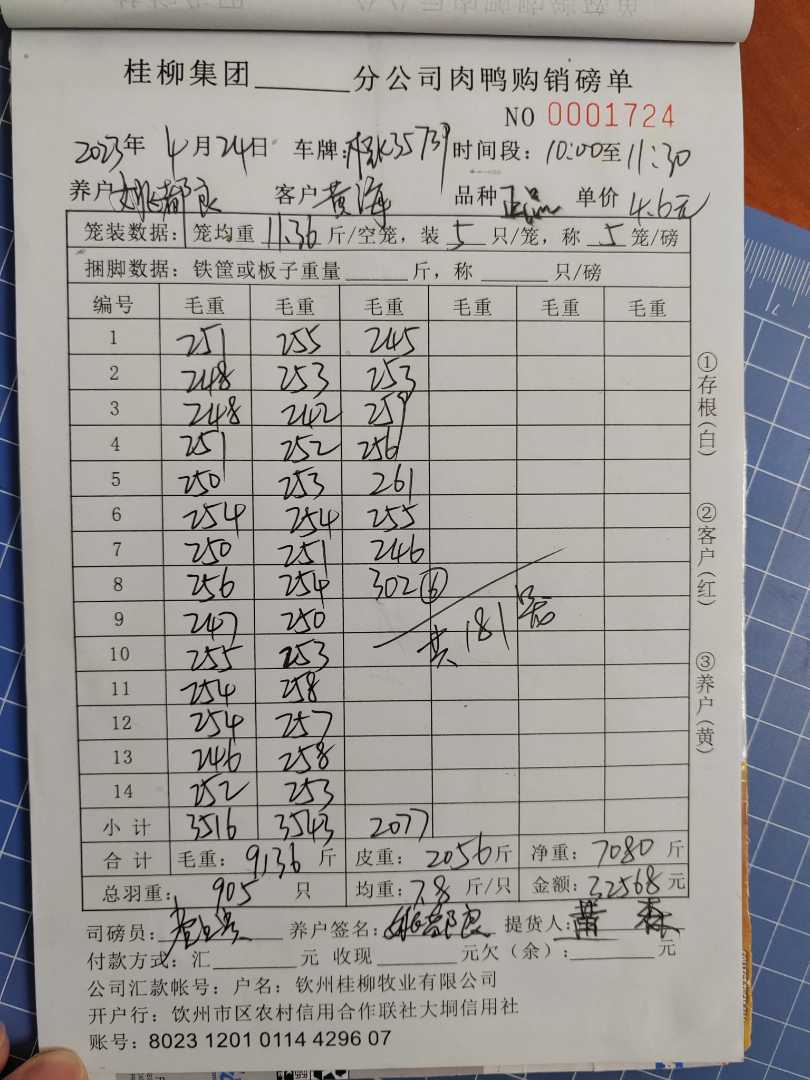 桂柳集团______分公司肉鸭购销磅单
NO 0001724
2023年 4月24日 车牌:桂K35739 时间段: 10:00至11:30
养户 都良 客户 黄海 品种 正品 单价 4.6元
笼装数据: 笼均重 11.36 斤/空笼, 装 5 只/笼, 称 5 笼/磅
捆脚数据: 铁筐或板子重量______斤, 称______只/磅
编号 毛重 毛重 毛重 毛重 毛重 毛重
1 251 255 245
2 248 253 253
3 248 242 259
4 251 252 256
5 250 253 261
6 254 254 255
7 250 251 246
8 256 254 302 ⑥
9 247 250
共181笼
10 255 253
11 254 258
12 254 257
13 246 258
14 252 253
小计 3516 3543 2077
合计 毛重: 9136 斤 皮重: 2056斤 净重: 7080 斤
总羽重: 905 只 均重: 7.8 斤/只 金额: 32568 元
司磅员: 养户签名: 都良 提货人:
付款方式: 汇______元 收现______元欠(余):______元
公司汇款帐号: 户名: 钦州桂柳牧业有限公司
开户行: 钦州市区农村信用合作联社大垌信用社
账号: 8023 1201 0114 4296 07
①存根(白)
②客户(红)
③养户(黄)